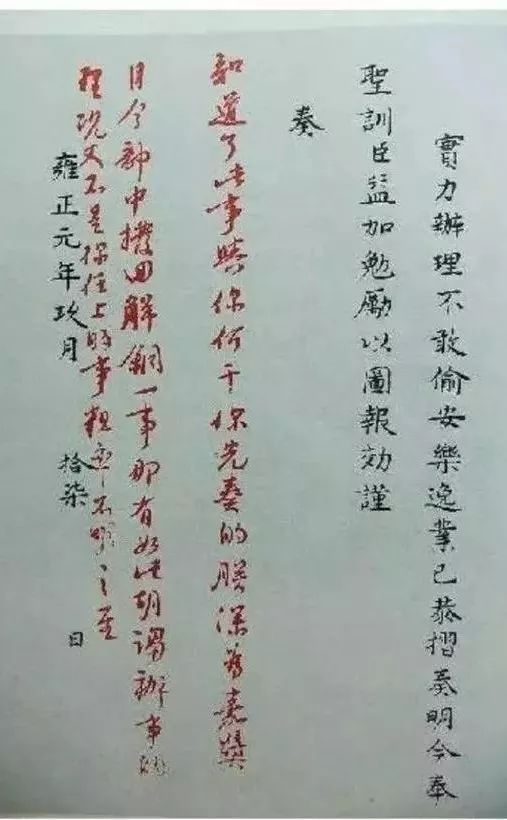 實力辦理不敢偷安樂逸業已恭摺奏明今奉
聖訓臣益加勉勵以圖報効謹
奏
知道了此事與你何干你先奏的朕深為嘉獎
目今部中撥回解銅一事那有如此胡謅辦事的
理況又不是你任上的事粗率不之至
雍正元年玖月 拾柒 日